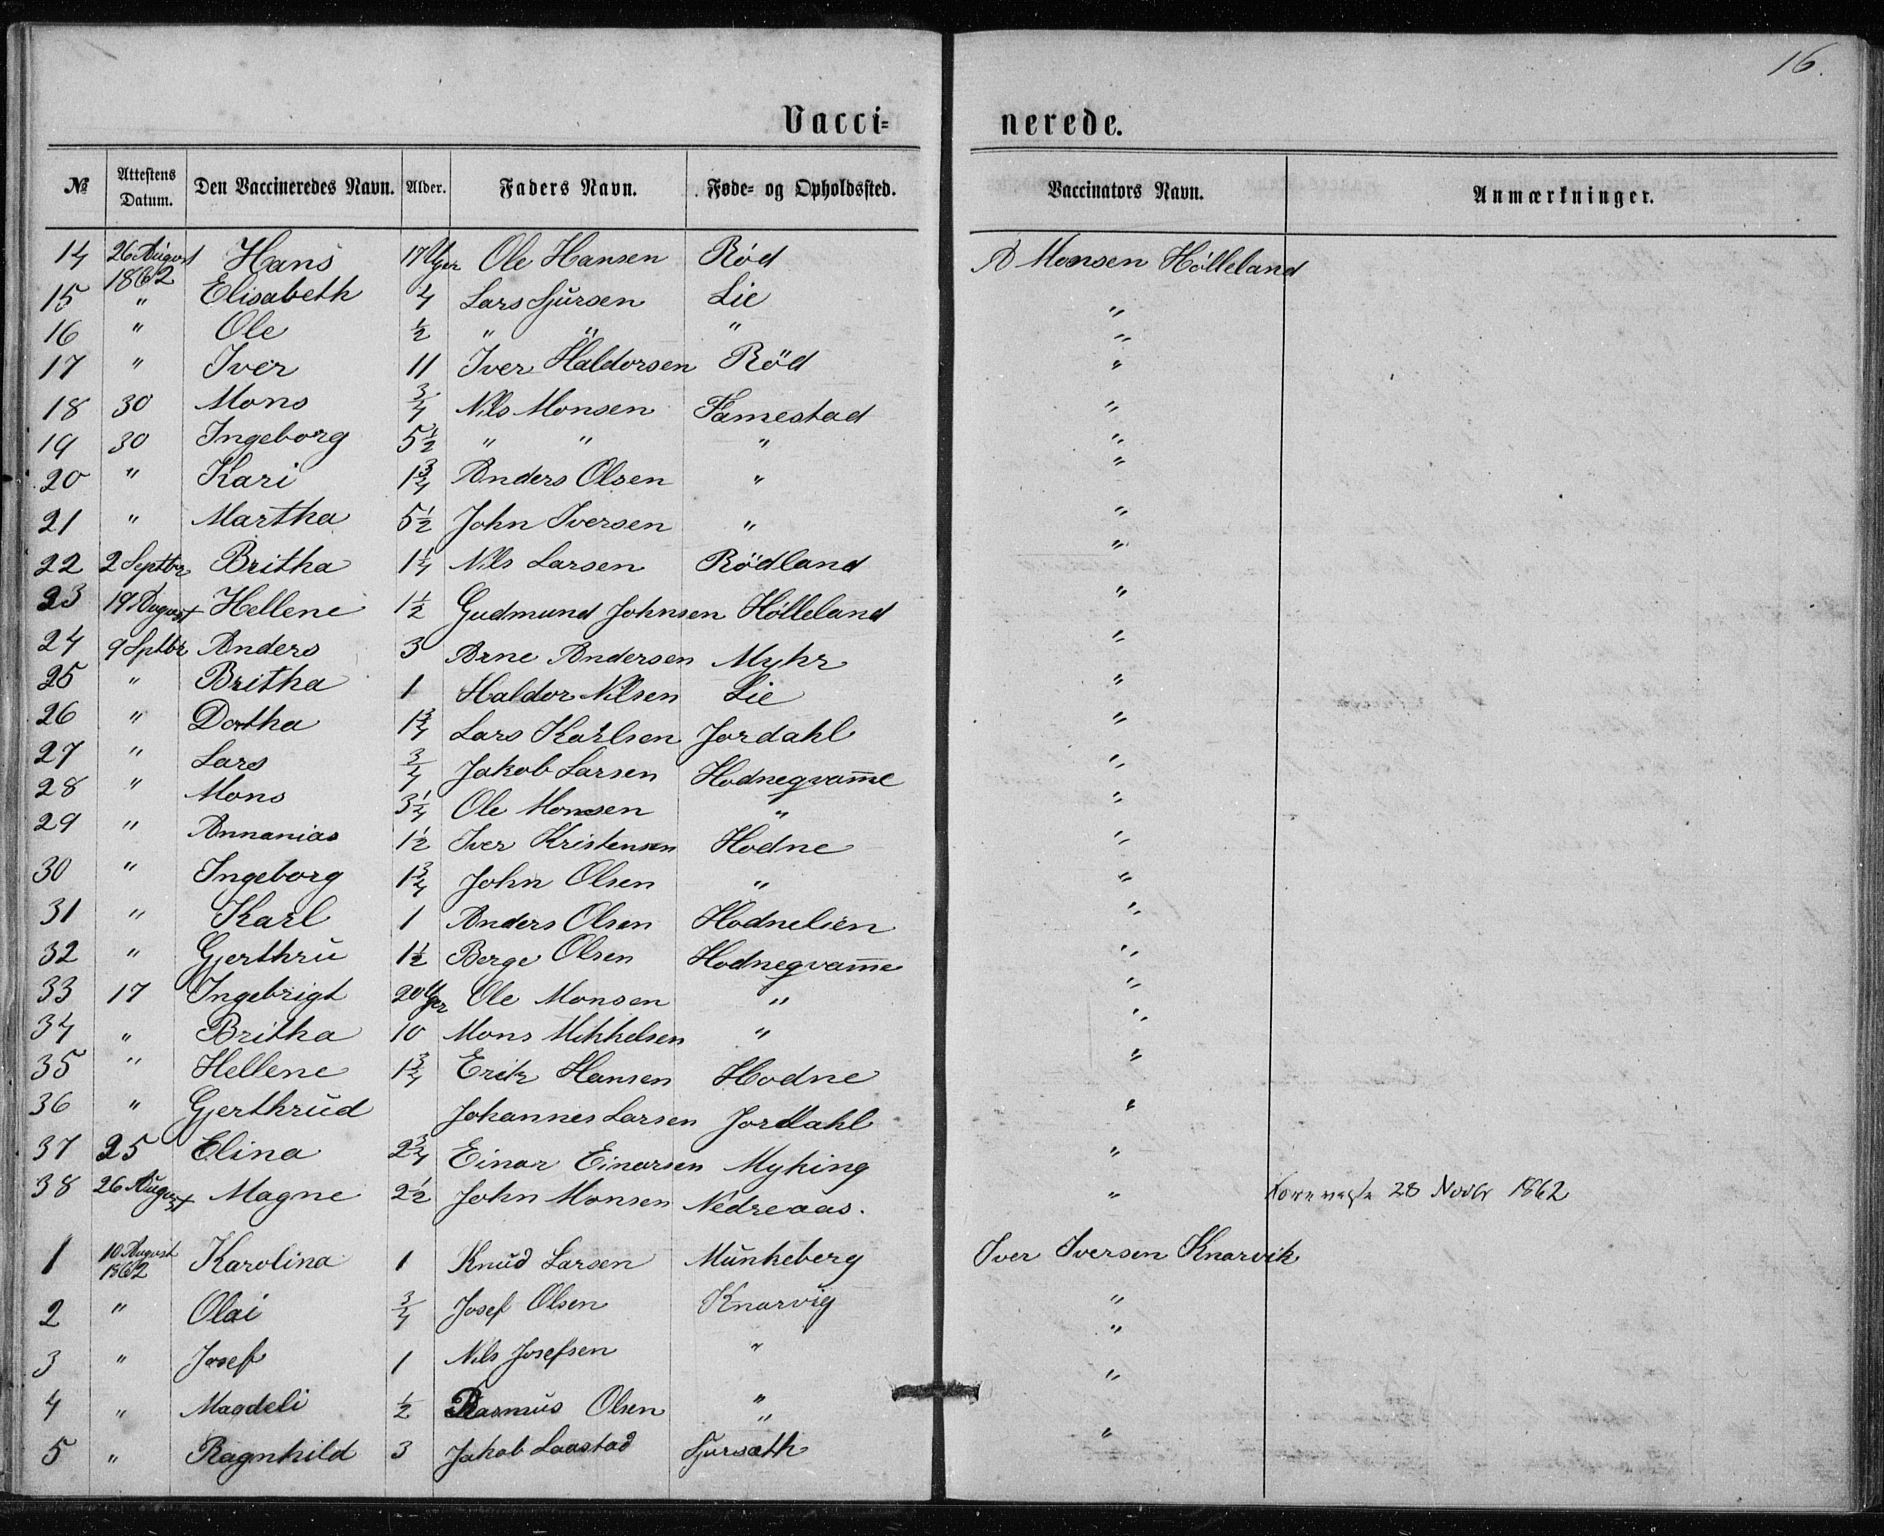 16.
Vacci= nerede.
№ Attestens Datum. Den Vaccineredes Navn. Alder. Faders Navn. Føde= og Opholdssted. Vaccinators Navn. Anmærkninger.
14 26 August 1862 Hans 17 Uger Ole Hansen Rød A Monsen Hølleland
15 " Elisabeth ¼ Lars Sjursen Lie "
16 " Ole ½ " " " "
17 " Iver 11 Iver Haldorsen Röd "
18 30 Mons ¾ Nils Monsen Famestad "
19 30 Ingeborg 5½ " " " "
20 " Kari 1¾ Anders Olsen " "
21 " Martha 5½ John Iversen " "
22 2 Septbr Britha 1¼ Nils Larsen Rödland "
23 19 August Hellene 1½ Gudmund Johnsen Hølleland "
24 9 Sptbr Anders 3 Arne Andersen Myhr "
25 " Britha 1 Haldor Nilsen Lie "
26 " Dortha 1¾ Lars Karlsen Jordahl "
27 " Lars ¾ Jakob Larsen Hodnegvam̅e "
28 " Mons 3¼ Ole Monsen " "
29 " Annanias 1½ Iver Kristensen Hodne "
30 " Ingeborg 1¾ John Olsen " "
31 " Karl 1 Anders Olsen Hodnelien "
32 " Gjerthru 1½ Berge Olsen Hodnegvam̅e "
33 17 Ingebrigt 20 Uger Ole Monsen " "
34 " Britha 10 Mons Mikkelsen " "
35 " Hellene 1¾ Erik Hansen Hodne "
36 " Gjerthrud Johannes Larsen Jordahl "
37 25 Elina 2¾ Einar Einarsen Myking "
38 26 August Magne 2½ John Monsen Nedreaas. " 28 Novbr 1862
1 10 August 1862 Karolina 1 Knud Larsen Munkeberg Iver Iversen Knarvik
2 " Olai ¾ Josef Olsen Knarvig "
3 " Josef 1 Nils Josefsen " "
4 " Magdeli ½ Rasmus Olsen " "
5 " Ragnhild 3 Jakob Laastad Sjursæth "